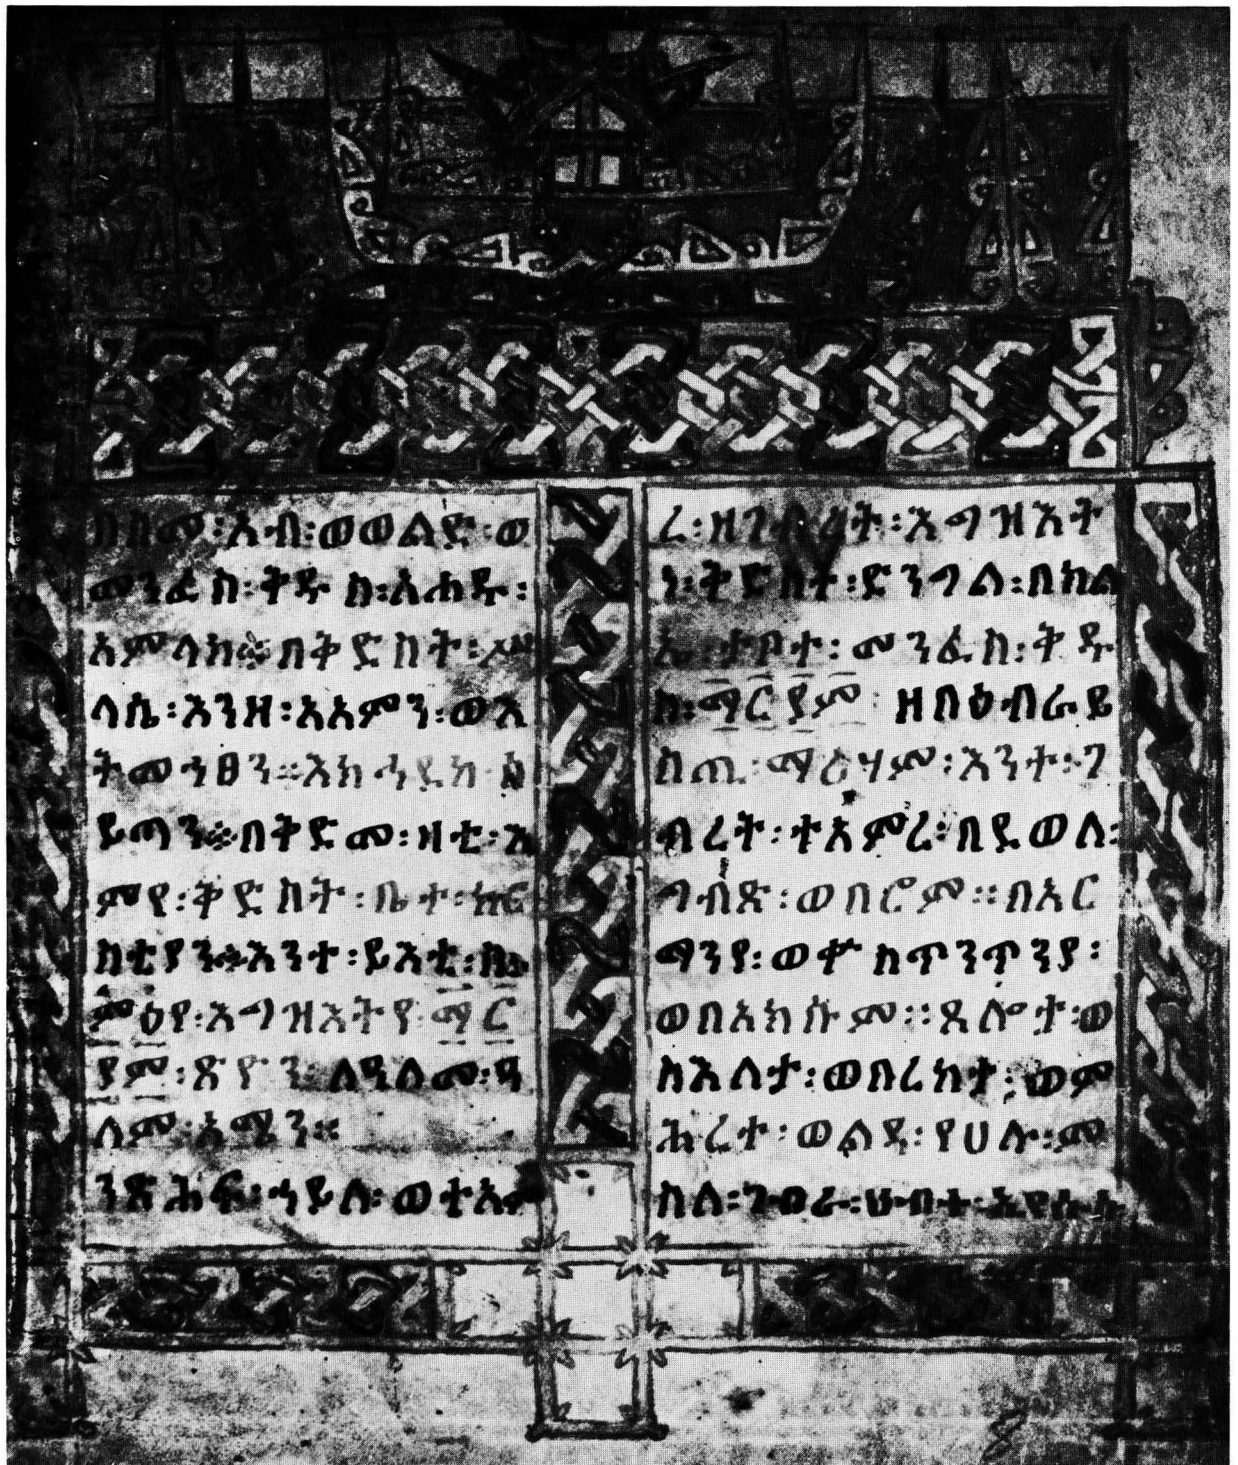 በስመ፡አብ፡ወወልድ፡ወ
መንፈስ፡ቅዱስ፡አሐዱ፡
አምላክ፨በቅድስት፡ሥ
ላሴ፡እንዘ፡አአምን፡ወእ
ትመኀፀን።እክሒደከ፡ሰ
ይጣን፨በቅድመ፡ዛቲ፡እ
ምየ፡ቅድስት፡ቤተ፡ክር
ስቲያን፨እንተ፡ይእቲ፡ስ
ምዕየ፡እግዝእትየ፡ማር
ያም፡ጽዮን፡ለዓለመ፡ዓ
ለም፡አሜን።
ንጽሕፍ፡ኀይለ፡ወተአም
ረ፡ዘገብረት፡እግዝእት
ነ፡ቅድስት፡ድንግል፡በክል
ኤ፡ታቦተ፡መንፈስ፡ቅዱ
ስ፡ማርያም፡ዘበዕብራይ
ስጢ፡ማሪሃም፡እንተ፡ገ
ብረት፡ተአምረ፡በደወለ፡
ግብጽ፡ወበሮም።በአር
ማንያ፡ወቍስጥንጥንያ፡
ወበአክሱም።ጸሎታ፡ወ
ስእለታ፡ወበረከታ፡ወም
ሕረተ፡ወልዳ፡የሀሉ፡ም
ስለ፡ገብራ፡ሀብተ፡ኢየሱስ